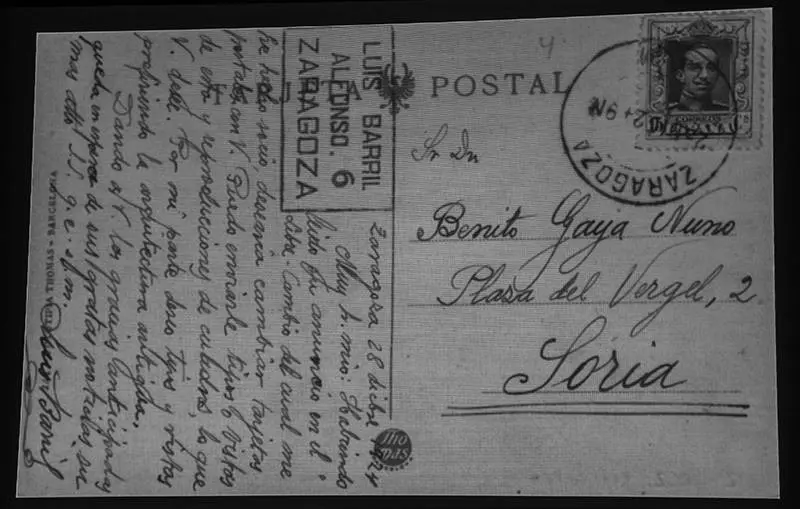 TARJETA POSTAL
LUIS BARRIL
ALFONSO. 6
ZARAGOZA
Zaragoza 28 dicbre 1924
Muy S. mio: Habiendo
leido su anuncio en el
Libre Cambio del cual me
he hecho socio, desearia cambiar tarjetas
postales con V. Puedo enviarle tipos o vistas
de esta y reproducciones de cuadros, lo que
V. desee. Por mi parte deseo tipos y vistas
prefiriendo la arquitectura antigua.
Dando a V. las gracias anticipadas
queda en espera de sus gratas noticias su
mas atto S.S. q. e. s. m.
Luis Barril
THOMAS - BARCELONA
Thomas
ZARAGOZA
Sr Dn
Benito Gaya Nuno
Plaza del Vergel, 2
Soria
4